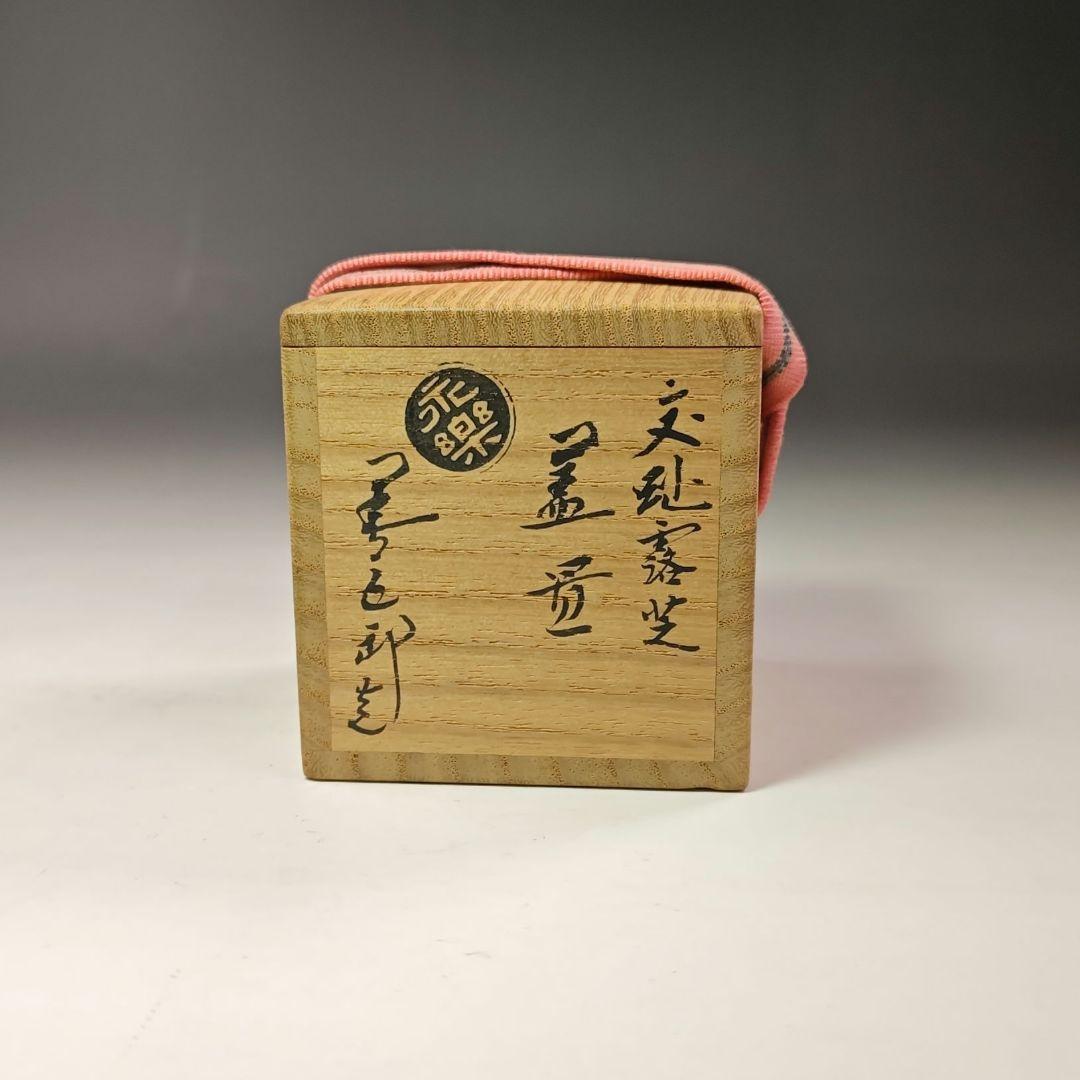 交趾露芝
蓋置
永樂
善五郎造